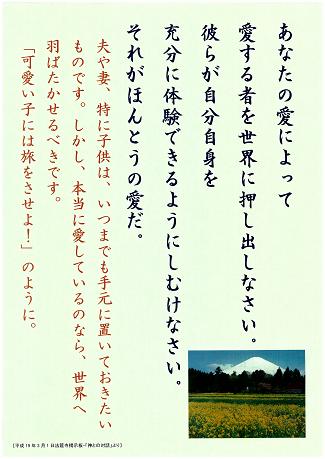 あなたの愛によって
愛する者を世界に押し出しなさい。
彼らが自分自身を
充分に体験できるようにしむけなさい。
それがほんとうの愛だ。
夫や妻、特に子供は、いつまでも手元に置いておきたい
ものです。しかし、本当に愛しているのなら、世界へ
羽ばたかせるべきです。
「可愛い子には旅をさせよ！」のように。